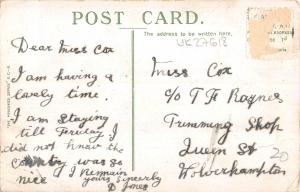 POST CARD.
THE ADDRESS TO BE WRITTEN HERE.
UK27618
Dear Miss Cox
I am having a
lovely time.
I am staying
till Tuesday I
did not know the
country was so
nice I Remain
yours sincerely
D Jones
Miss Cox
c/o T F Raynes
Trimming Shop
Queen St
Wolverhampton
20